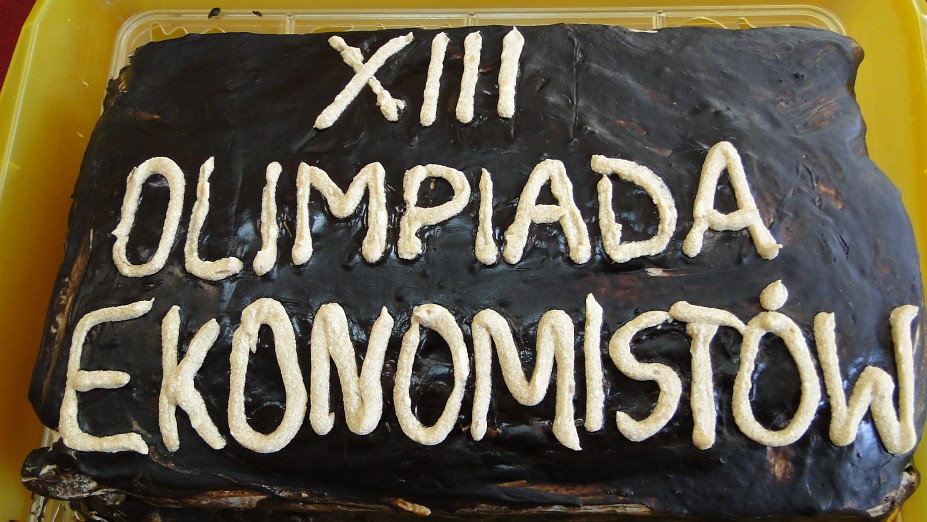 XIII
OLIMPIADA
EKONOMISTÓW